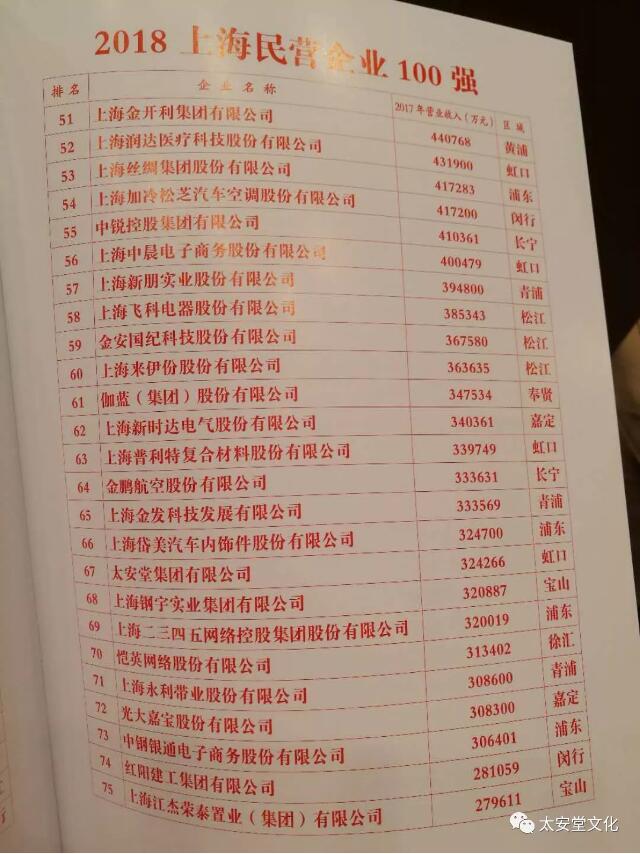 2018 上海民营企业 100 强
排名 企业名称 2017年营业收入（万元） 区域
51 上海金开利集团有限公司 440768 黄浦
52 上海润达医疗科技股份有限公司 431900 虹口
53 上海丝绸集团股份有限公司 417283 浦东
54 上海加冷松芝汽车空调股份有限公司 417200 闵行
55 中锐控股集团有限公司 410361 长宁
56 上海中晨电子商务股份有限公司 400479 虹口
57 上海新朋实业股份有限公司 394800 青浦
58 上海飞科电器股份有限公司 385343 松江
59 金安国纪科技股份有限公司 367580 松江
60 上海来伊份股份有限公司 363635 松江
61 伽蓝（集团）股份有限公司 347534 奉贤
62 上海新时达电气股份有限公司 340361 嘉定
63 上海普利特复合材料股份有限公司 339749 虹口
64 金鹏航空股份有限公司 333631 长宁
65 上海金发科技发展有限公司 333569 青浦
66 上海岱美汽车内饰件股份有限公司 324700 浦东
67 太安堂集团有限公司 324266 虹口
68 上海钢宇实业集团有限公司 320887 宝山
69 上海二三四五网络控股集团股份有限公司 320019 浦东
70 恺英网络股份有限公司 313402 徐汇
71 上海永利带业股份有限公司 308600 青浦
72 光大嘉宝股份有限公司 308300 嘉定
73 中钢银通电子商务股份有限公司 306401 浦东
74 红阳建工集团有限公司 281059 闵行
75 上海江杰荣泰置业（集团）有限公司 279611 宝山
行
太安堂文化